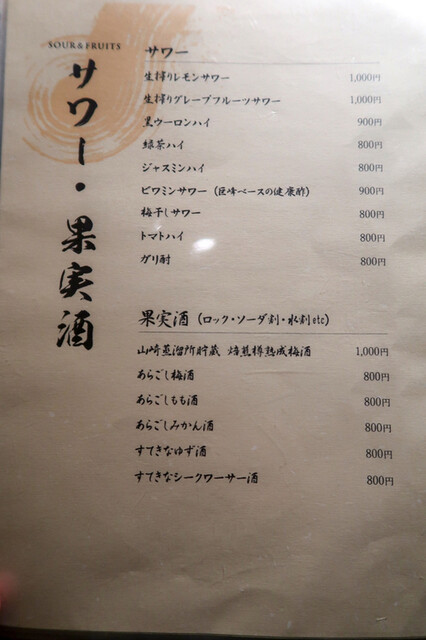 SOUR & FRUITS
サワー・果実酒
サワー
生搾りレモンサワー 1,000円
生搾りグレープフルーツサワー 1,000円
黒ウーロンハイ 900円
緑茶ハイ 800円
ジャスミンハイ 800円
ビワミンサワー（巨峰ベースの健康酢） 900円
梅干しサワー 800円
トマトハイ 800円
ガリ酎 800円
果実酒（ロック・ソーダ割・水割etc）
山崎蒸溜所貯蔵 焙煎樽熟成梅酒 1,000円
あらごし梅酒 800円
あらごしもも酒 800円
あらごしみかん酒 800円
すてきなゆず酒 800円
すてきなシークワーサー酒 800円